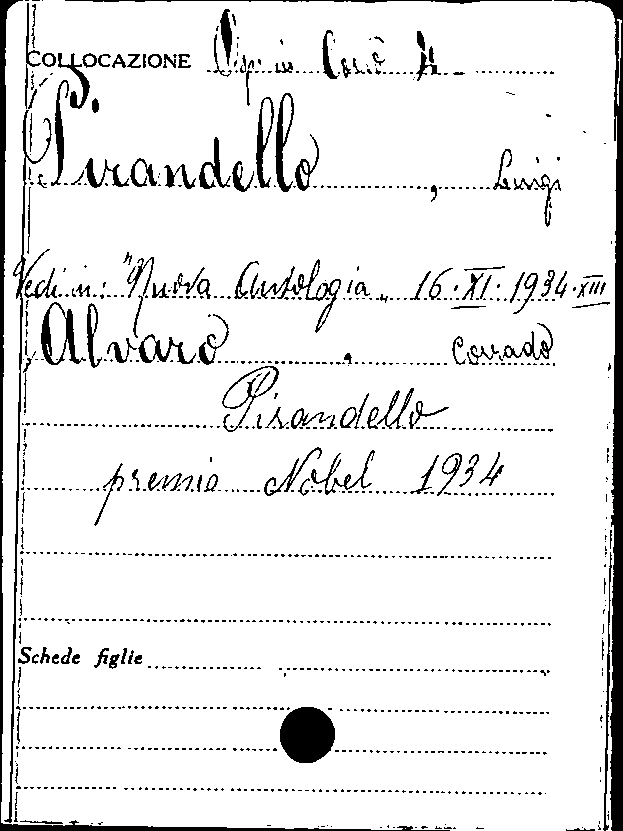 COLLOCAZIONE Op. in
Pirandello, Luigi
Vedi in: "Nuova Antologia„ 16·XI·1934·XIII
Alvaro, Corrado
Pirandello
premio Nobel 1934
Schede figlie